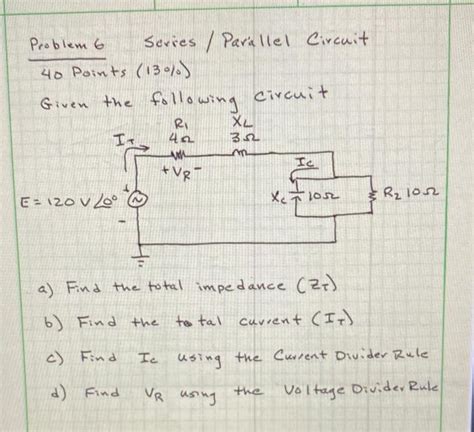 Problem 6 Series / Parallel Circuit
40 Points (13%)
Given the following circuit
R1 XL
IT 4Ω 3Ω
+ VR - IC
E = 120 V ∠0° + Xc 10Ω R2 10Ω
-
a) Find the total impedance (ZT)
b) Find the total current (IT)
c) Find Ic using the Current Divider Rule
d) Find VR using the Voltage Divider Rule